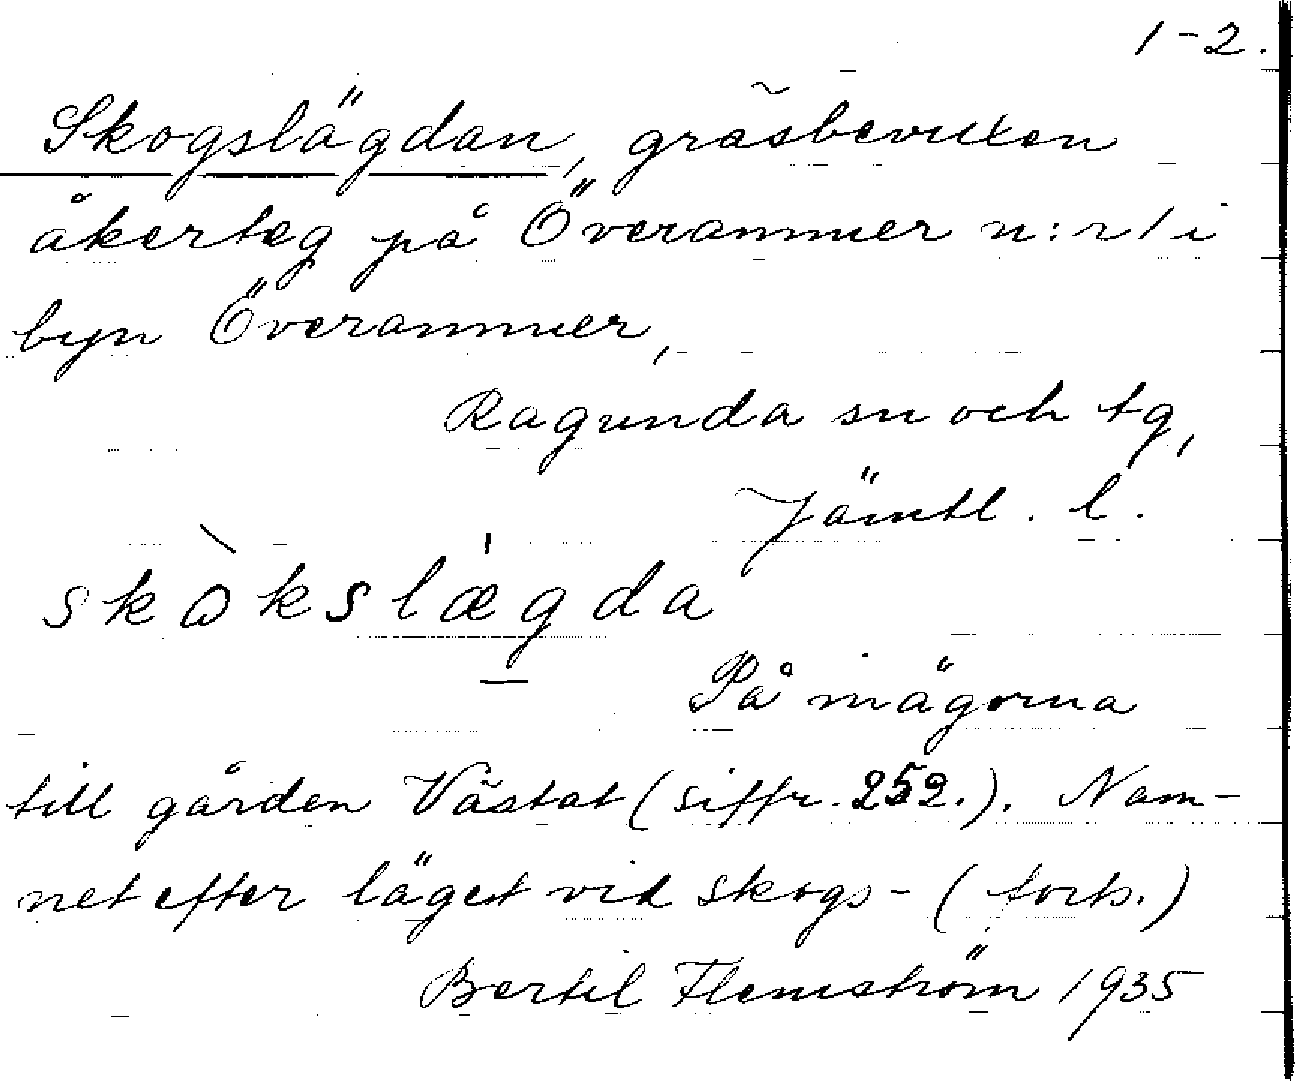 1-2.
Skogslägdan, gräsbevuxen
åkerteg på Överammer n:r 1 i
byn Överammer,
Ragunda sn och tg,
Jämtl. l.
skὼkslǽgda
På inägorna
till gården Västat (siffr. 252.). Nam-
net efter läget vid skogs- (forts.)
Bertil Flemström 1935